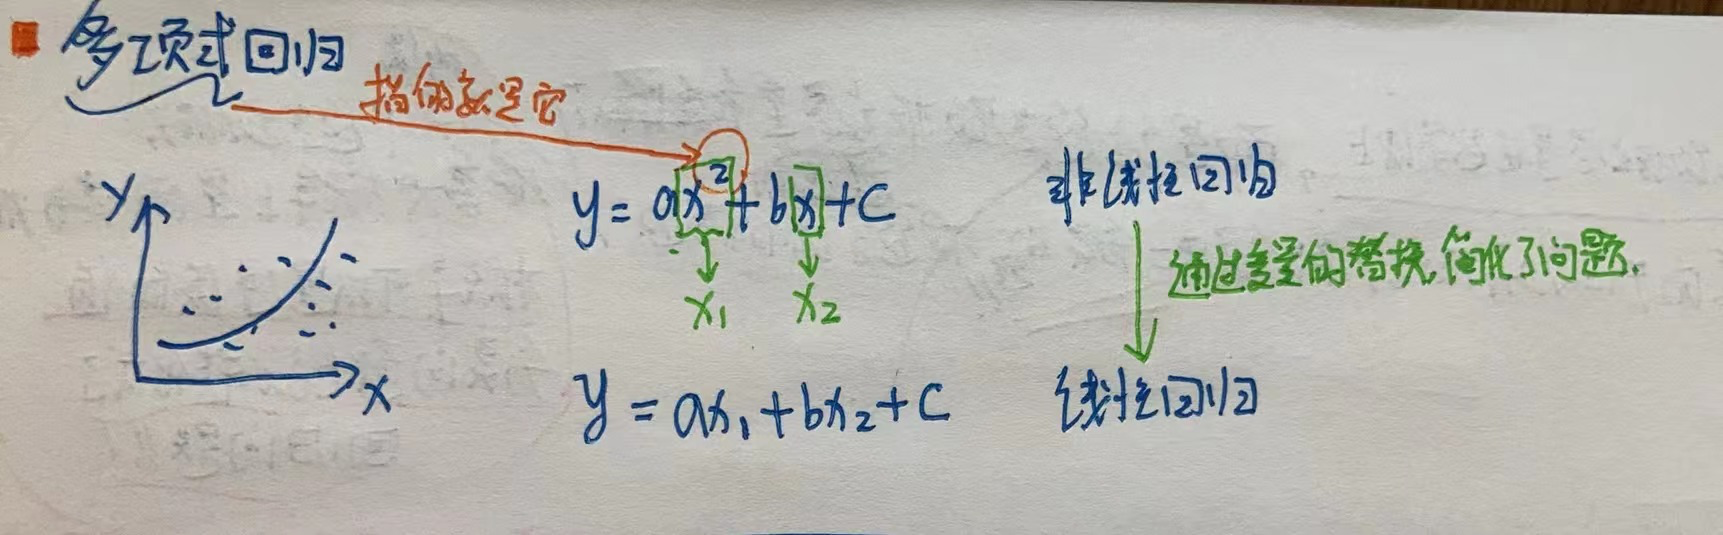 多项式回归
指的就是它
Y
X
y = ax² + bx + c
x₁ x₂
非线性回归
通过变量的替换,简化了问题.
y = ax₁ + bx₂ + c
线性回归